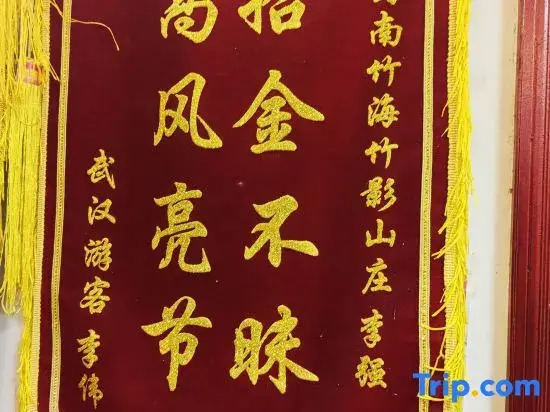 蜀南竹海竹影山庄李强
拾金不昧
高风亮节
武汉游客 李伟
Trip.com